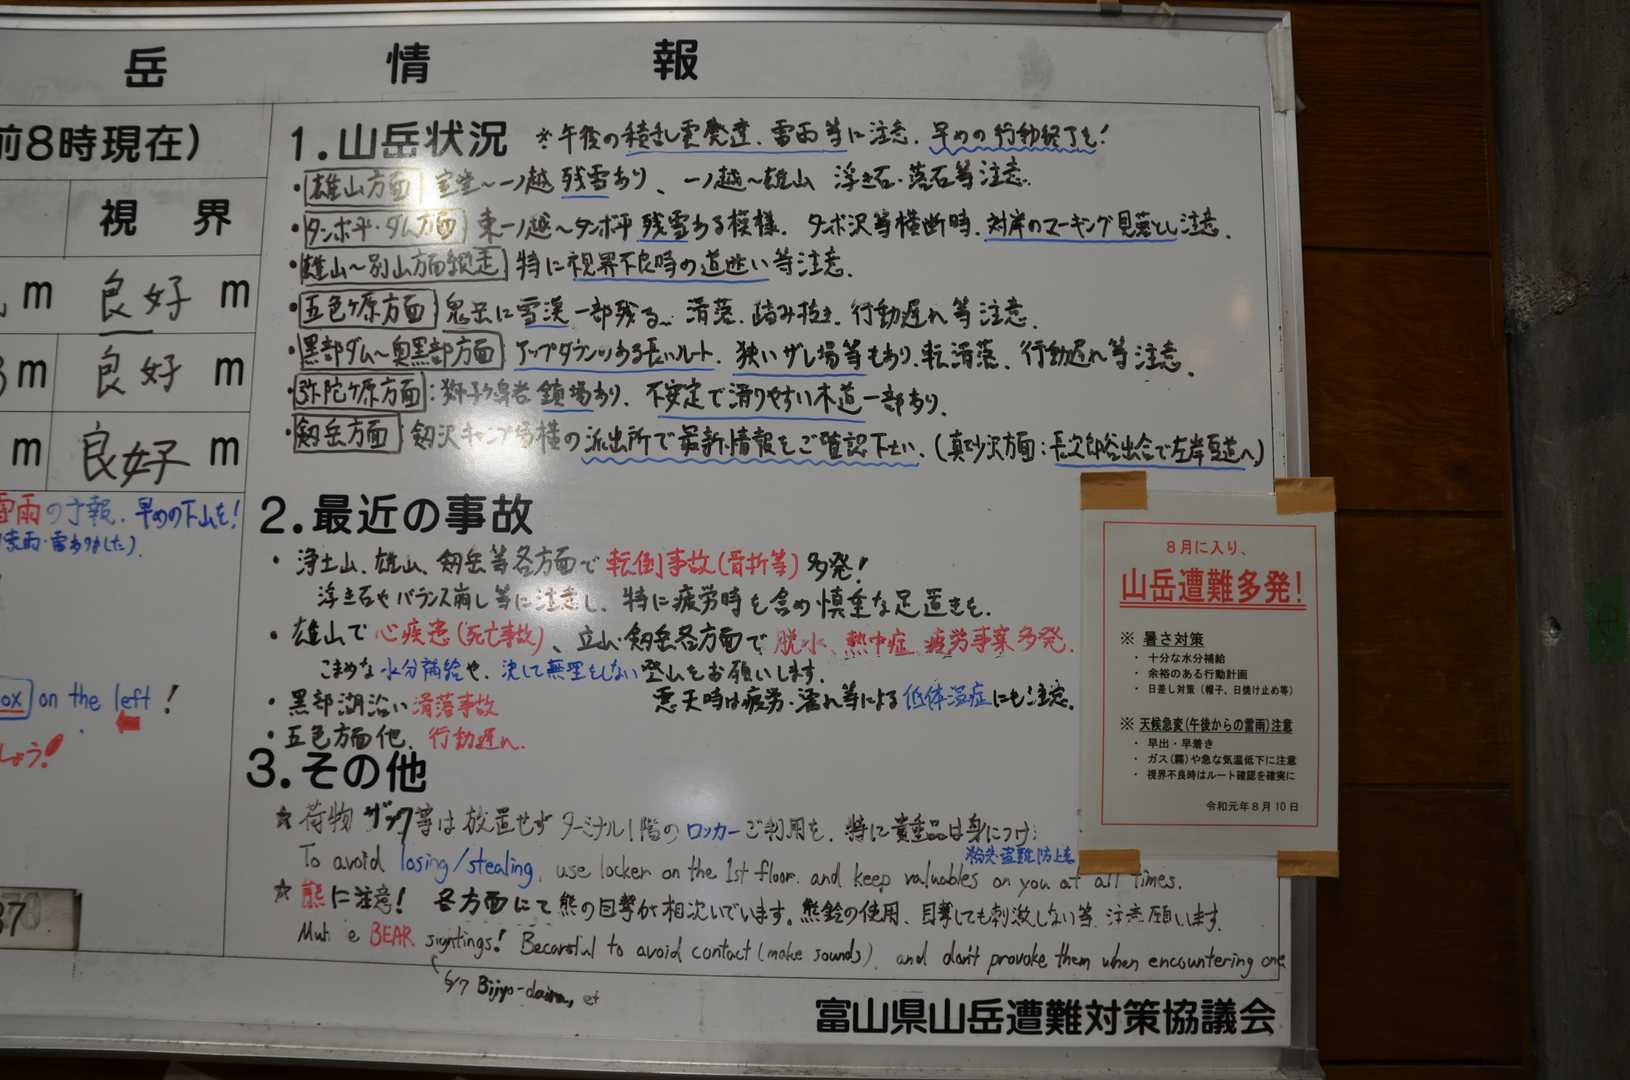 岳 情 報
前8時現在)
視 界
m 良好 m
m 良好 m
m 良好 m
雷雨の予報、早めの下山を!
雷ありました)
ox on the left!
しょう!
1.山岳状況 ※午後の積乱雲発達、雷雨等に注意、早めの行動終了を!
・雄山方面 室堂〜一ノ越 残雪あり、一ノ越〜雄山 浮き石・落石等注意.
・タンボ平・ダム方面 東一ノ越〜タンボ平 残雪ある模様、タンボ沢等横断時、対岸のマーキング見落とし注意.
・雄山〜別山方面縦走 特に視界不良時の道迷い等注意.
・五色ヶ原方面 鬼岳に雪渓一部残る。滑落、踏み抜き、行動遅れ等注意.
・黒部ダム〜奥黒部方面 アップダウンのある長いルート、狭いザレ場等もあり、転滑落、行動遅れ等注意.
・弥陀ヶ原方面:獅子ヶ鼻岩 鎖場あり、不安定で滑りやすい木道一部あり.
・剱岳方面 剱沢キャンプ場横の派出所で最新情報をご確認下さい.(真砂沢方面:長次郎谷出合で左岸夏道へ)
2.最近の事故
・浄土山、雄山、剱岳等各方面で転倒事故(骨折等)多発!
浮き石やバランス崩し等に注意し、特に疲労時も含め慎重な足置きを.
・雄山で心疾患(死亡事故)、立山・剱岳各方面で脱水、熱中症、疲労事案多発.
こまめな水分補給や、決して無理をしない登山をお願いします.
・黒部湖沿い滑落事故 悪天時は疲労・濡れ等による低体温症にも注意.
・五色方面他、行動遅れ.
3.その他
☆荷物 ザック等は放置せずターミナル1階のロッカーご利用を、特に貴重品は身につけ
紛失・盗難防止を
To avoid losing/stealing, use locker on the 1st floor. and keep valuables on you at all times.
☆熊に注意! 各方面にて熊の目撃が相次いでいます。熊鈴の使用、目撃しても刺激しない等、注意願います.
BEAR sightings! Becareful to avoid contact (make sounds), and don't provoke them when encountering one
Bijyo-daira, et
富山県山岳遭難対策協議会
8月に入り、
山岳遭難多発!
※ 暑さ対策
・ 十分な水分補給
・ 余裕のある行動計画
・ 日差し対策(帽子、日焼け止め等)
※ 天候急変(午後からの雷雨)注意
・ 早出・早着き
・ ガス(霧)や急な気温低下に注意
・ 視界不良時はルート確認を確実に
令和元年8月10日